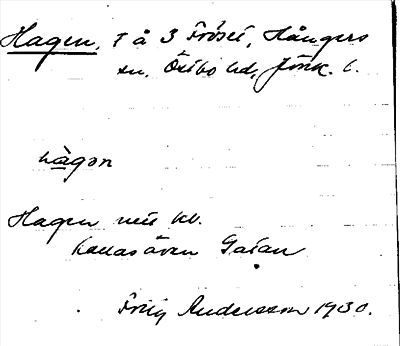 Hagen, T å 3 Fröset, Hångers
sn, Östbo hd, Jönk. l.
hàgən
Hagen nu kl.
kallas även Gatan
Frity Andersson 1930.